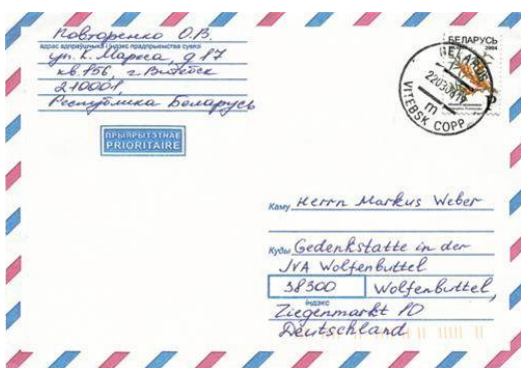 Повторенко О.В.
адрас адпраўшчыка і індэкс прадпрыемства сувязі
ул. К. Маркса, д 17
кв. 156, г. Витебск
210001,
Республика Беларусь
ПРЫЯРЫТЭТНАЕ
PRIORITAIRE
БЕЛАРУСЬ
2004
P
BELARUS
VITEBSK COPP
Каму Herrn Markus Weber
Куды Gedenkstatte in der
JVA Wolfenbuttel
38300 Wolfenbuttel,
індэкс
Ziegenmarkt 10
Deutschland